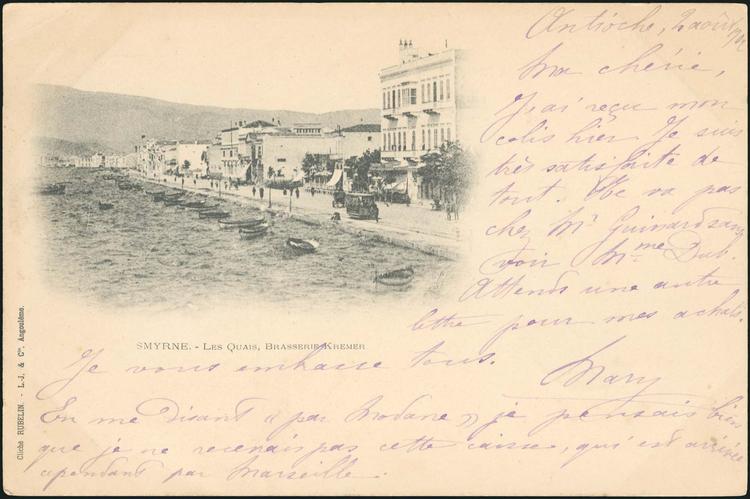 Antioche, 2 août
Ma chérie,
J'ai reçu mon
colis hier. Je suis
très satisfaite de
tout. Ne va pas
chez Mr Guinard sans
voir Mme Dub.
Attends une autre
lettre pour mes achats.
SMYRNE. - LES QUAIS, BRASSERIE KREMER
Je vous embrasse tous.
Mary
En me disant « par Modane » je pensais bien
que je ne recevrais pas cette caisse, qui est arrivée
cependant par Marseille.
Cliché RUBELIN. - L.-J. & Cie. Angoulème.